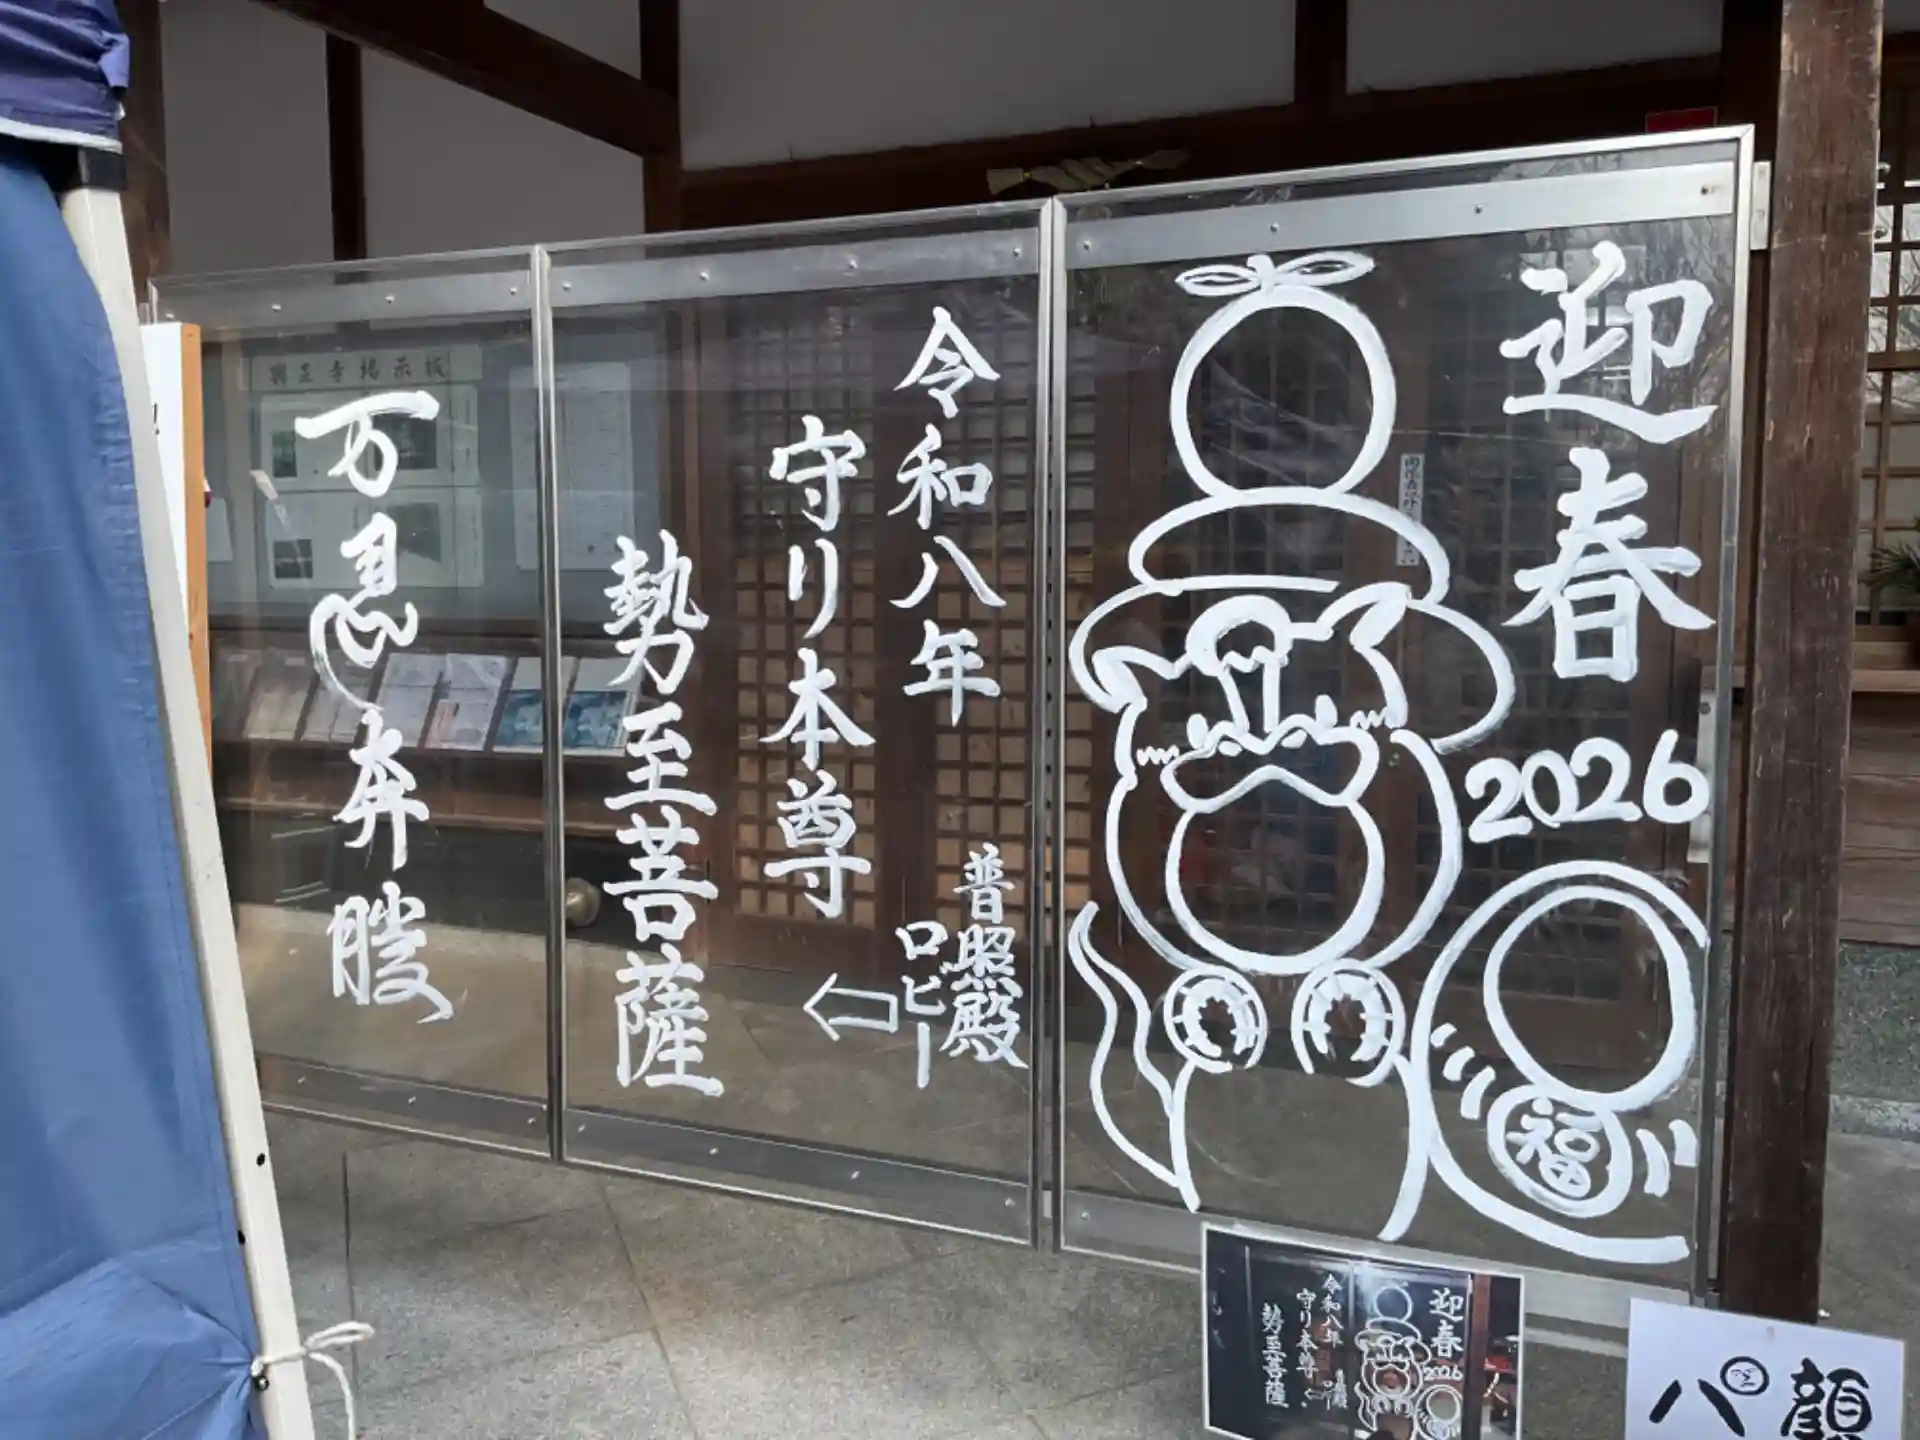 迎春
2026
福
令和八年
守り本尊
勢至菩薩
普照殿
ロビー
万
奔
勝
興正寺掲示板
迎春
2026
令和八年
守り本尊
勢至菩薩
パ
顔